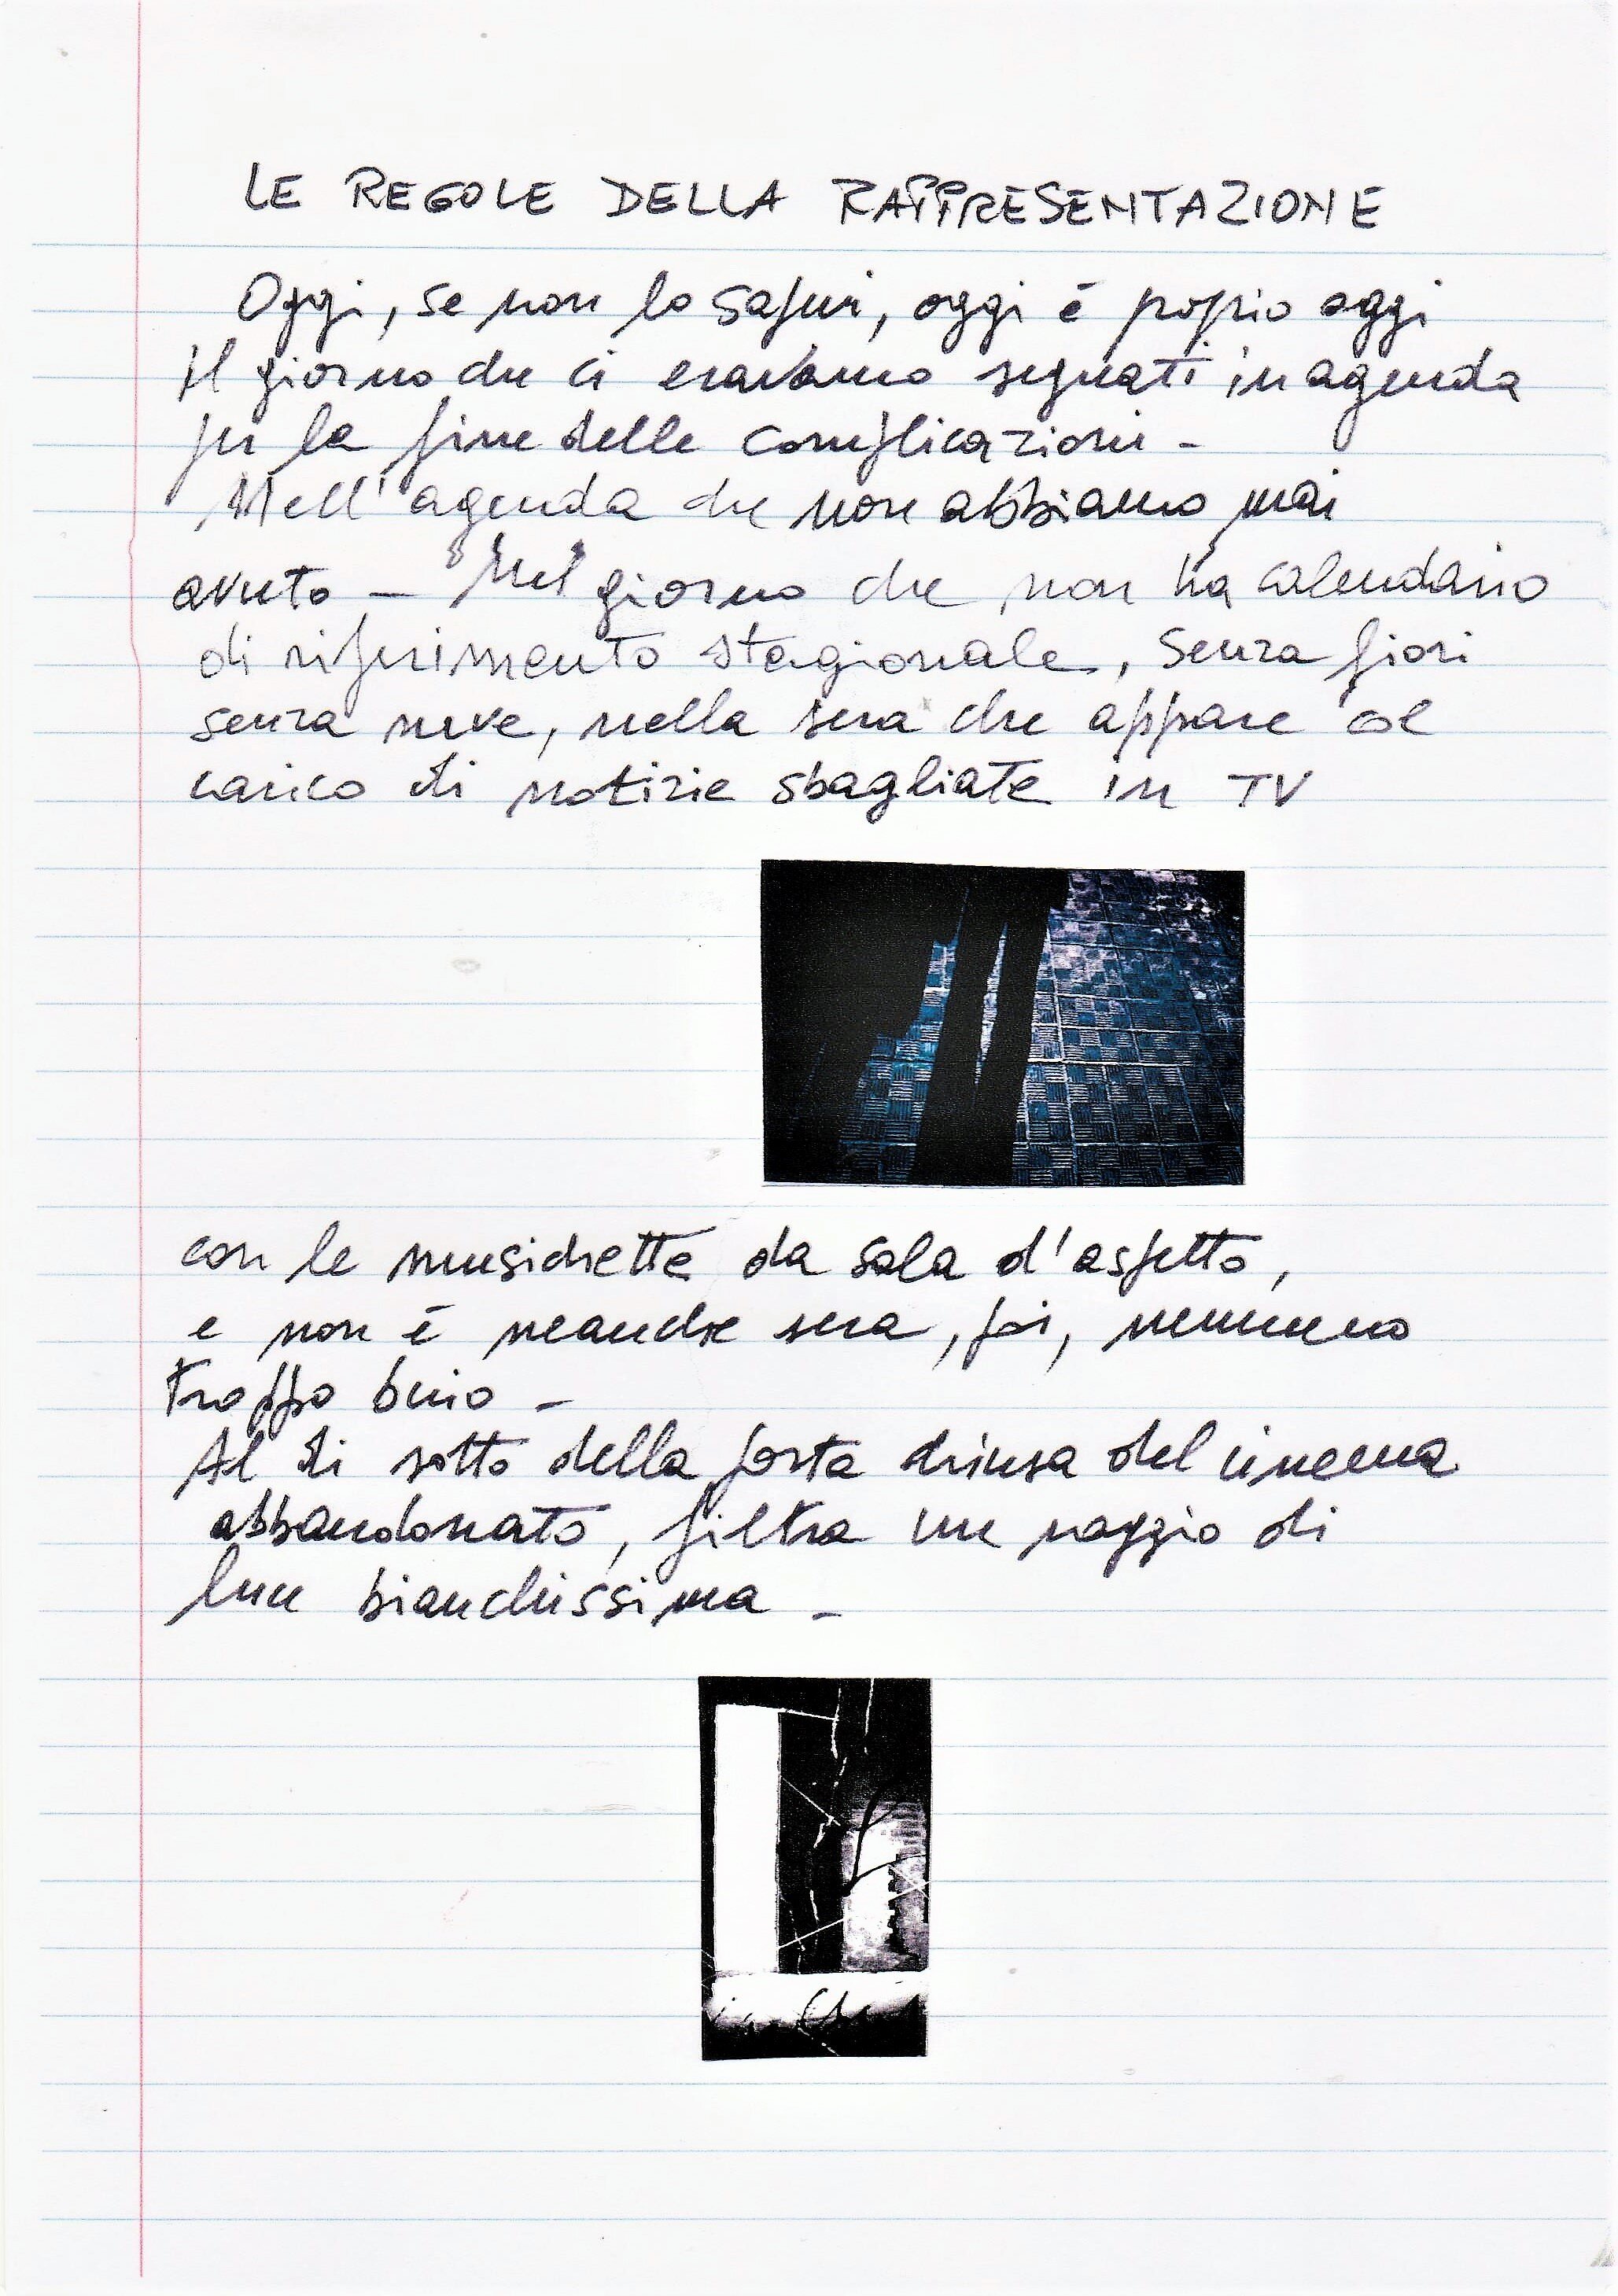 LE REGOLE DELLA RAPPRESENTAZIONE
Oggi, se non lo sapevi, oggi è proprio oggi
Il giorno che ci eravamo segnati in agenda
per la fine delle complicazioni -
Nell'agenda che non abbiamo mai
avuto - Nel giorno che non ha calendario
di riferimento stagionale, senza fiori
senza neve, nella sera che appare col
carico di notizie sbagliate in TV
con le musichette da sala d'aspetto,
e non è neanche sera, poi, nemmeno
troppo buio -
Al di sotto della porta chiusa del cinema
abbandonato, filtra un raggio di
luce bianchissima -